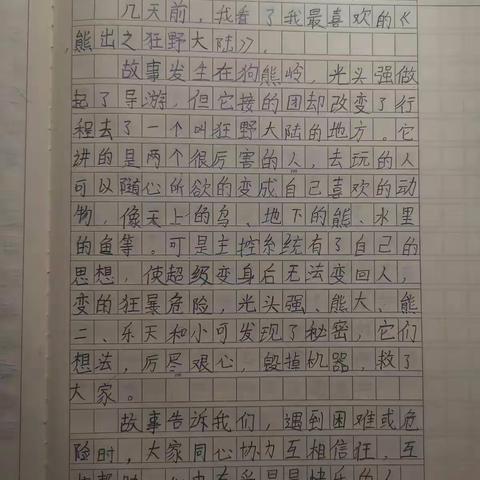 几天前，我看了我最喜欢的《
熊出之狂野大陆》。
故事发生在狗熊岭，光头强做
起了导游，但它接的团却改变了行
程去了一个叫狂野大陆的地方。它
讲的是两个很厉害的人，去玩的人
可以随心所欲的变成自己喜欢的动
物，像天上的鸟、地下的熊、水里
的鱼等。可是主控系统有了自己的
思想，使超级变身后无法变回人，
变的狂暴危险，光头强、熊大、熊
二、乐天和小可发现了秘密，它们
想法，厉尽艰心，毁掉机器，救了
大家。
故事告诉我们，遇到困难或危
险时，大家同心协力互相信狂，互